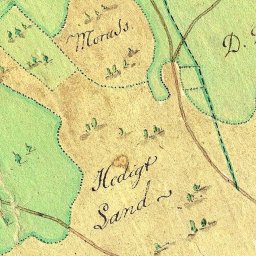 Morads
D.
Hedigt
Land